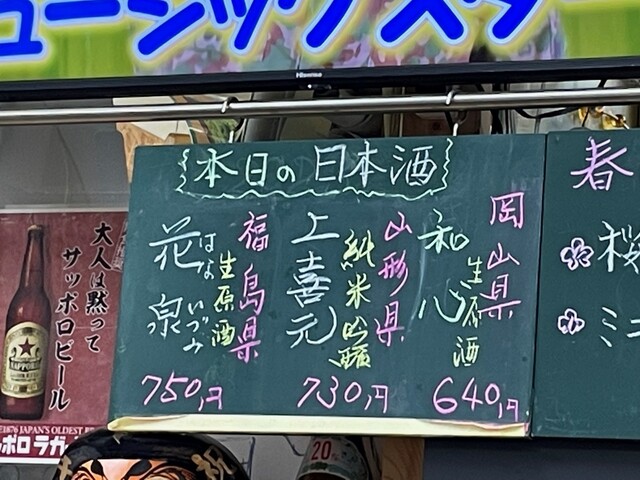 ュージックスタ
Hisense
本日の日本酒
岡山県
和心
生原酒
640円
山形県
純米吟醸
上喜元
730円
福島県
生原酒
花泉
はないづみ
750円
春
桜
ミニ
大人は黙って
サッポロビール
SAPPORO
1876 JAPAN'S OLDEST
ッポロラガー
20